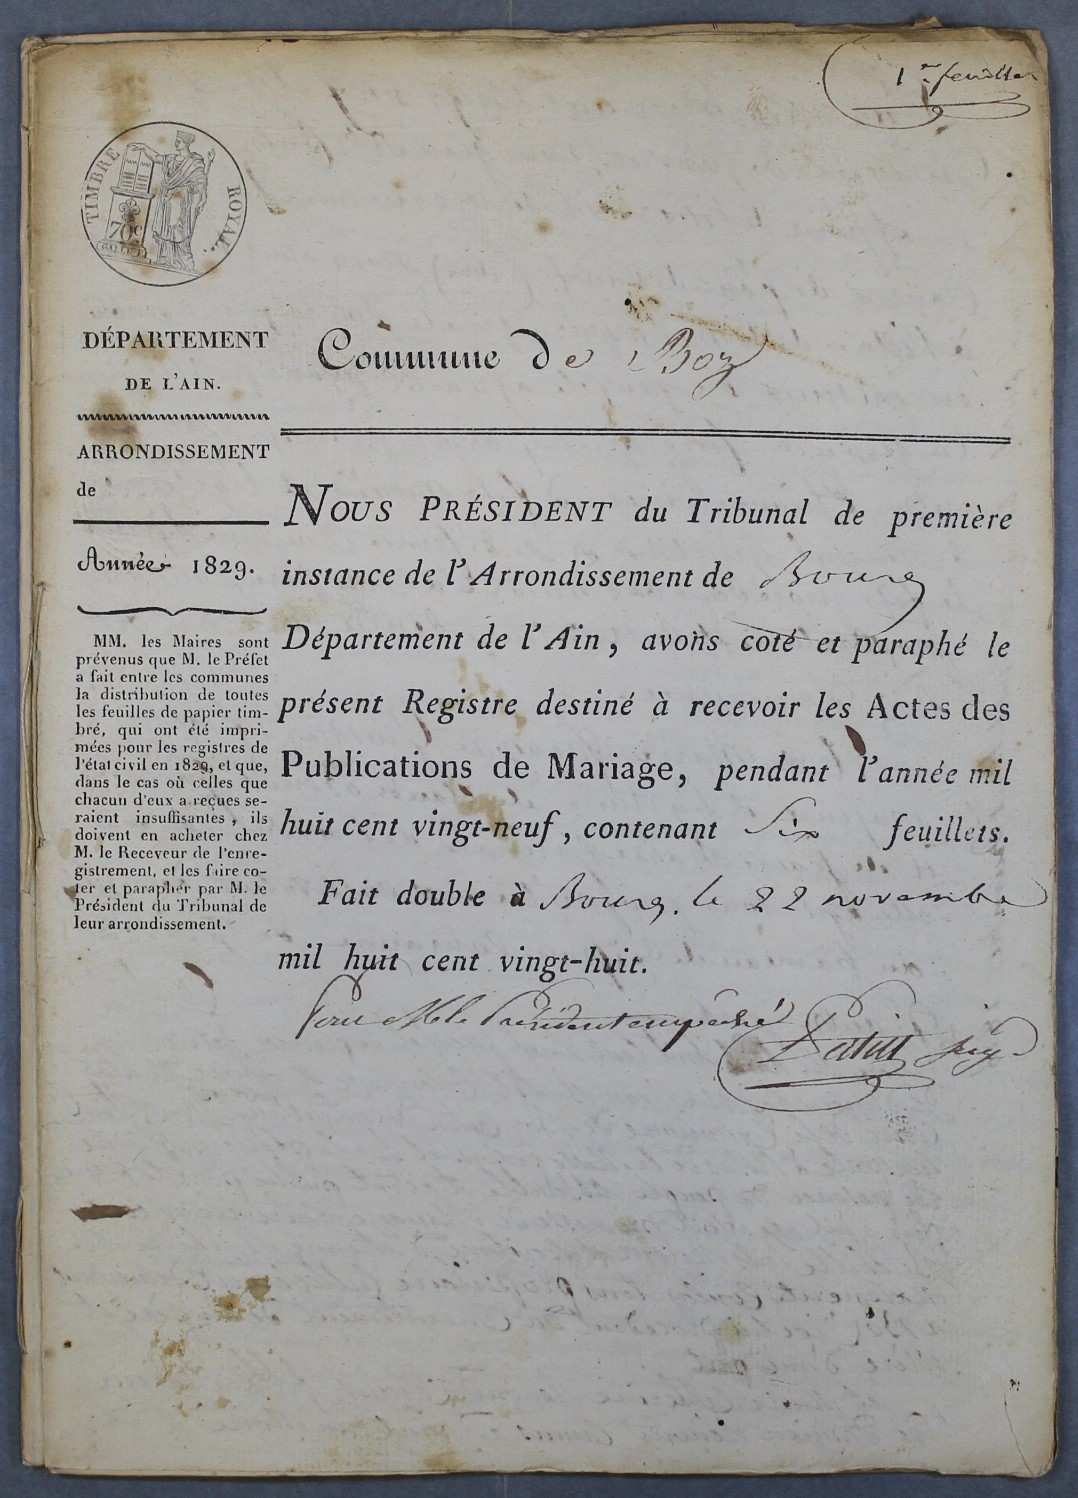 1er feuillet
TIMBRE ROYAL.
70c
DÉPARTEMENT
DE L'AIN.
ARRONDISSEMENT
de
Année 1829.
MM. les Maires sont
prévenus que M. le Préfet
a fait entre les communes
la distribution de toutes
les feuilles de papier tim-
bré, qui ont été impri-
mées pour les registres de
l'état civil en 1829, et que,
dans le cas où celles que
chacun d'eux a reçues se-
raient insuffisantes, ils
doivent en acheter chez
M. le Receveur de l'enre-
gistrement, et les faire co-
ter et parapher par M. le
Président du Tribunal de
leur arrondissement.
Commune de Boz
NOUS PRÉSIDENT du Tribunal de première
instance de l'Arrondissement de Bourg
Département de l'Ain, avons coté et paraphé le
présent Registre destiné à recevoir les Actes des
Publications de Mariage, pendant l'année mil
huit cent vingt-neuf, contenant Six feuillets.
Fait double à Bourg. le 22 novembre
mil huit cent vingt-huit.
Pour M. le Président empêché